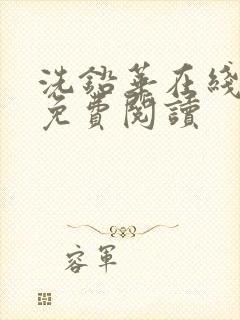 洗鉛華在綫
免費閱讀
容軍